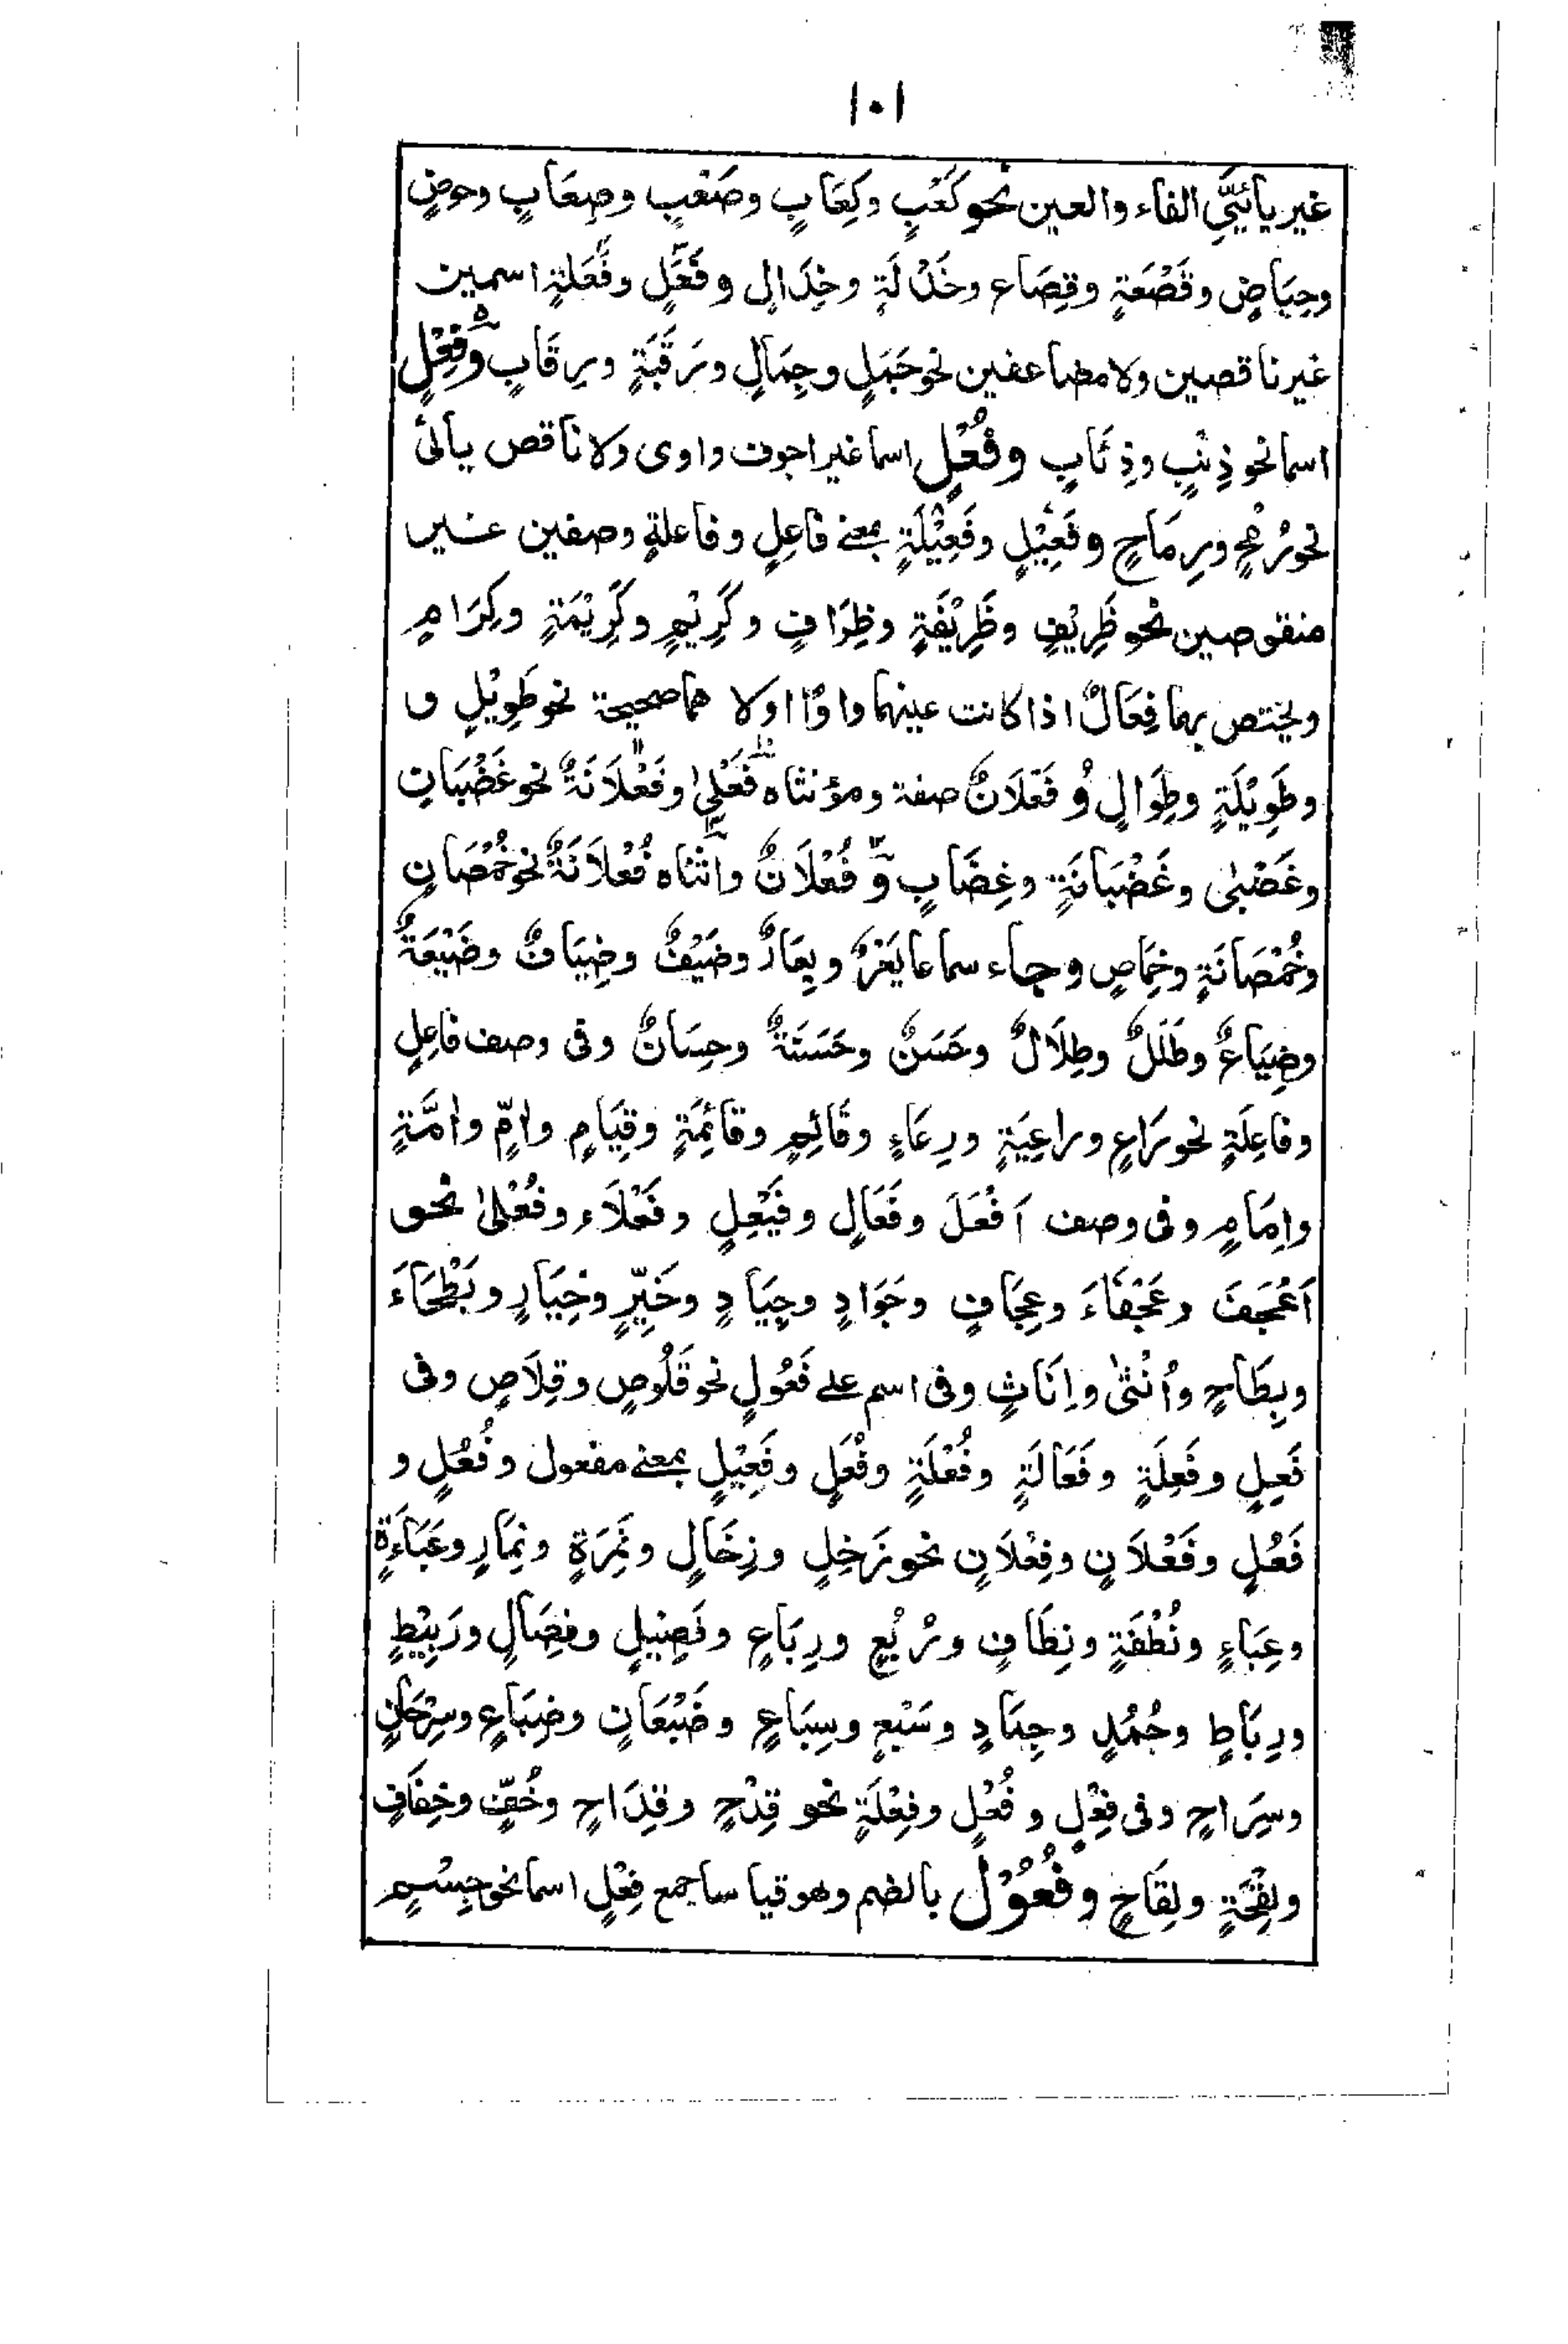 ١٠١
غير يائيَّيِ الفاء والعين نحو كَعْبٍ وكِعَابٍ وصَعْبٍ وصِعَابٍ وحوضٍ
وحِيَاضٍ وقَصْعَةٍ وقِصَاع وخَدْلَةٍ وخِدَالٍ وفَعَلٍ وفَعَلَةٍ اسمين
غير ناقصين ولا مضاعفين نحو جَبَلٍ وجِبَالٍ ورَقَبَةٍ ورِقَابٍ وفِعْلٍ
اسما نحو ذِئبٍ وذِئَابٍ وفُعْلٍ اسما غير اجوف واوى ولا ناقص يائى
نحو رُمْحٍ ورِمَاحٍ وفَعِيْلٍ وفَعِيْلَةٍ بمعنے فاعِلٍ وفاعلةٍ وصفين غير
منقوصين نحو ظَرِيْفٍ وظَرِيْفَةٍ وظِرَافٍ وكَرِيْمٍ وكَرِيْمَةٍ وكِرَامٍ
ويختص بهما فِعَالٌ اذا كانت عينهما واوًا اولا هما صحيحة نحو طَوِيْلٍ و
وطَوِيْلَةٍ وطِوَالٍ وفَعْلَانٌ صفة ومؤنثاه فَعْلىٰ وفَعْلَانَةٌ نحو غَضْبَانٍ
وغَضْبىٰ وغَضْبَانَةٍ وغِضَابٍ وفُعْلَانٌ وانثاه فُعْلَانَةٌ نحو خُمْصَانٍ
وخُمْصَانَةٍ وخِمَاصٍ وجاء سماعا يَعْرٌ ويِعَارٌ وضَيْفٌ وضِيَافٌ وضَيْعَةٌ
وضِيَاعٌ وطَلَلٌ وطِلَالٌ وحَسَنٌ وحَسَنَةٌ وحِسَانٌ وفى وصف فاعِلٍ
وفاعِلَةٍ نحو رَاعٍ وراعِيَةٍ ورِعَاءٍ وقَائِمٍ وقائِمَةٍ وقِيَامٍ وامٍّ وامَّةٍ
واِمَامٍ وفى وصف اَفْعَلَ وفَعَالٍ وفَيْعِلٍ وفَعْلَاء وفُعْلىٰ نحو
اَعْجَفَ وعَجْفَاءَ وعِجَافٍ وجَوَادٍ وجِيَادٍ وخَيِّرٍ وخِيَارٍ وبَطْحَاءَ
وبِطَاحٍ واُنْثىٰ واِنَاثٍ وفى اسم علے فَعُولٍ نحو قَلُوصٍ وقِلَاصٍ وفى
فَعِلٍ وفَعِلَةٍ وفَعَالَةٍ وفُعْلَةٍ وفُعَلٍ وفَعِيْلٍ بمعنے مفعول وفُعُلٍ و
فَعُلٍ وفَعْلَانٍ وفِعْلَانٍ نحو رَخِلٍ ورِخَالٍ ونَمِرَةٍ ونِمَارٍ وعَبَاءَةٍ
وعِبَاءٍ ونُطْفَةٍ ونِطَافٍ ورُبَعٍ ورِبَاعٍ وفَصِيلٍ وفِصَالٍ ورَبِيْطٍ
ورِبَاطٍ وجُمُدٍ وجِمَادٍ وسَبُعٍ وسِبَاعٍ وضَبْعَانٍ وضِبَاعٍ وسِرْحَانٍ
وسِرَاحٍ وفى فِعْلٍ وفُعْلٍ وفِعْلَةٍ نحو قِدْحٍ وقِدَاحٍ وخُفٍّ وخِفَافٍ
ولِقْحَةٍ ولِقَاحٍ وفُعُوْلٌ بالضم وهو قياسا جمع فِعْلٍ اسما نحو جِسْمٍ